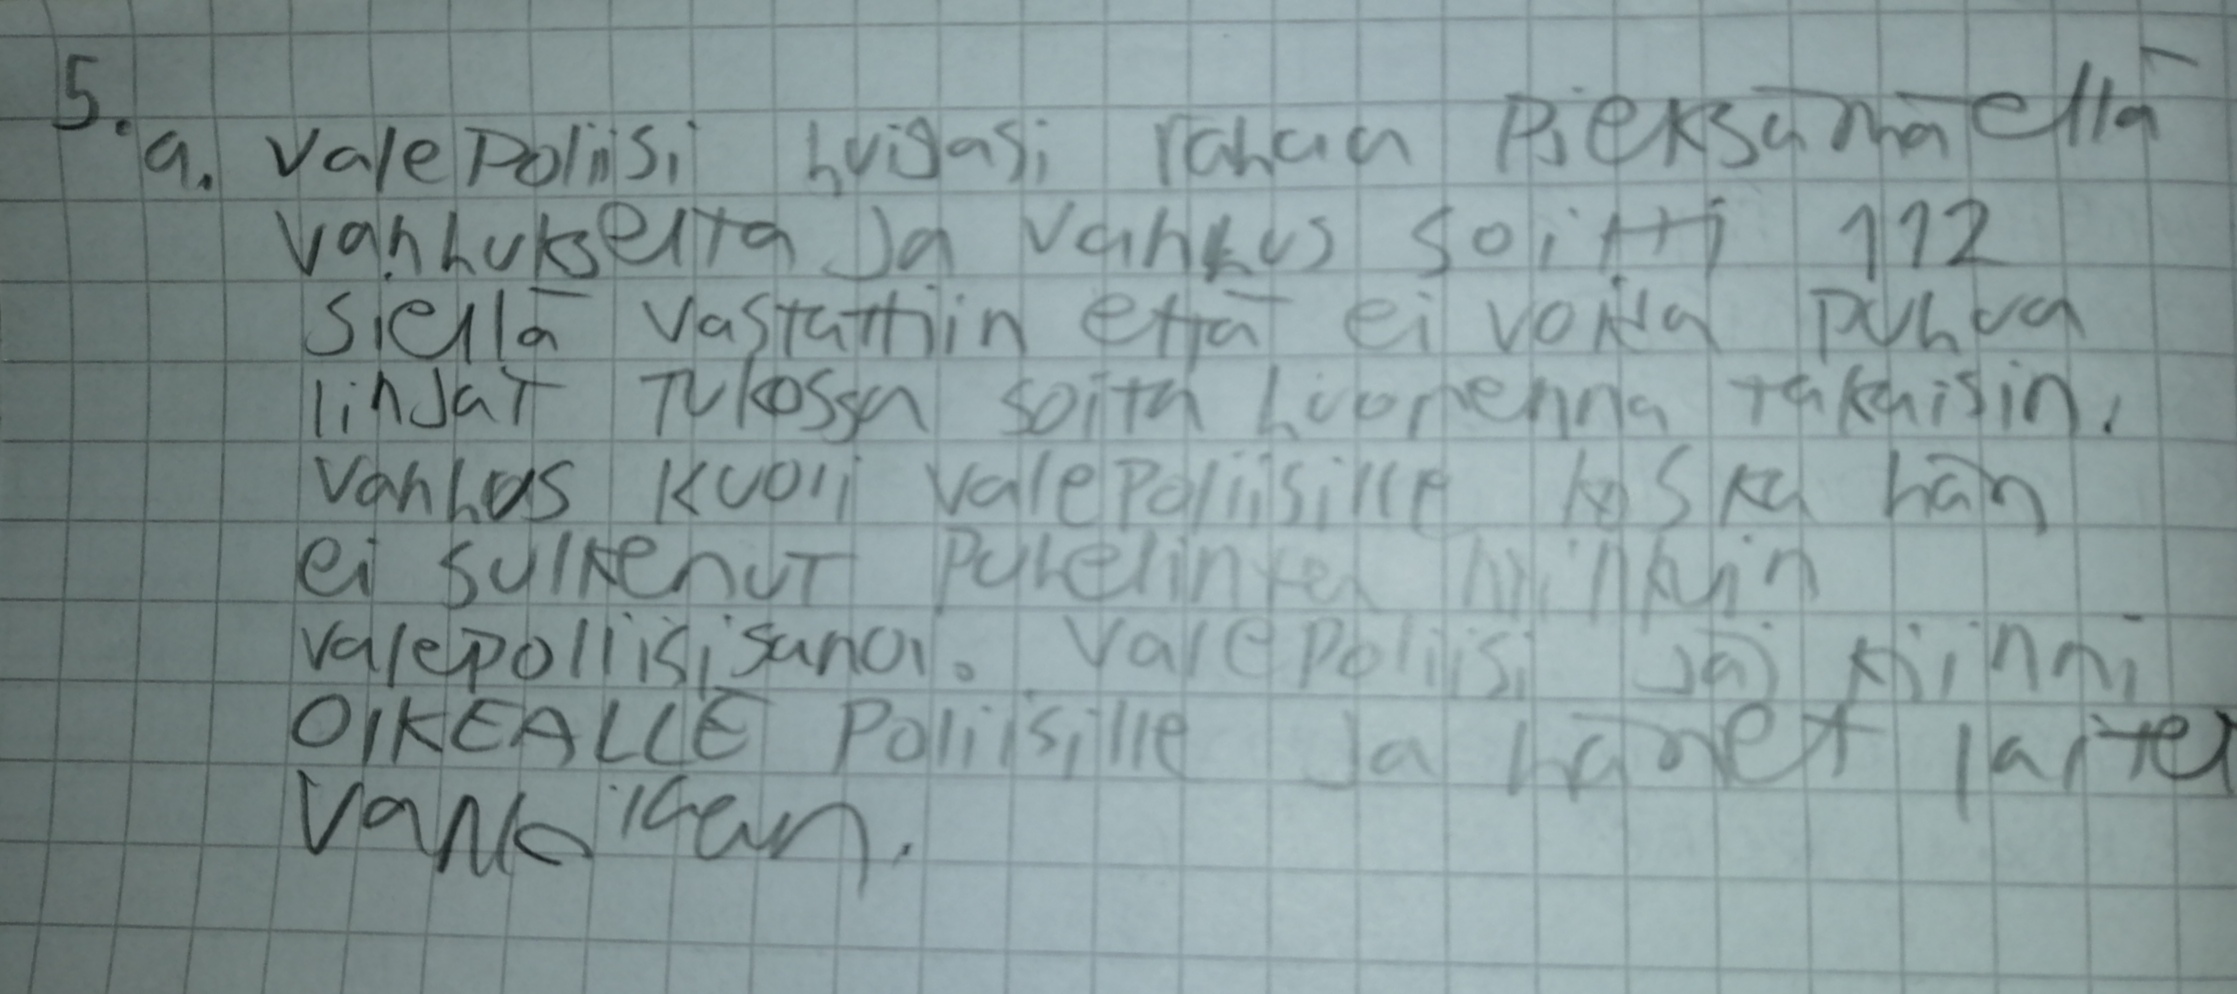 5.
a. Valepoliisi huijasi rahaa Pieksämäellä
vanhukselta ja vanhus soitti 112
siellä vastattiin että ei voida puhua
linjat tukossa soita huomenna takaisin.
vanhus kuoli valepoliisille koska hän
ei sulkenut puhelinta niinkuin
valepoliisi sanoi. Valepoliisi jäi kiinni
OIKEALLE Poliisille ja hänet laitet
vankilaan.